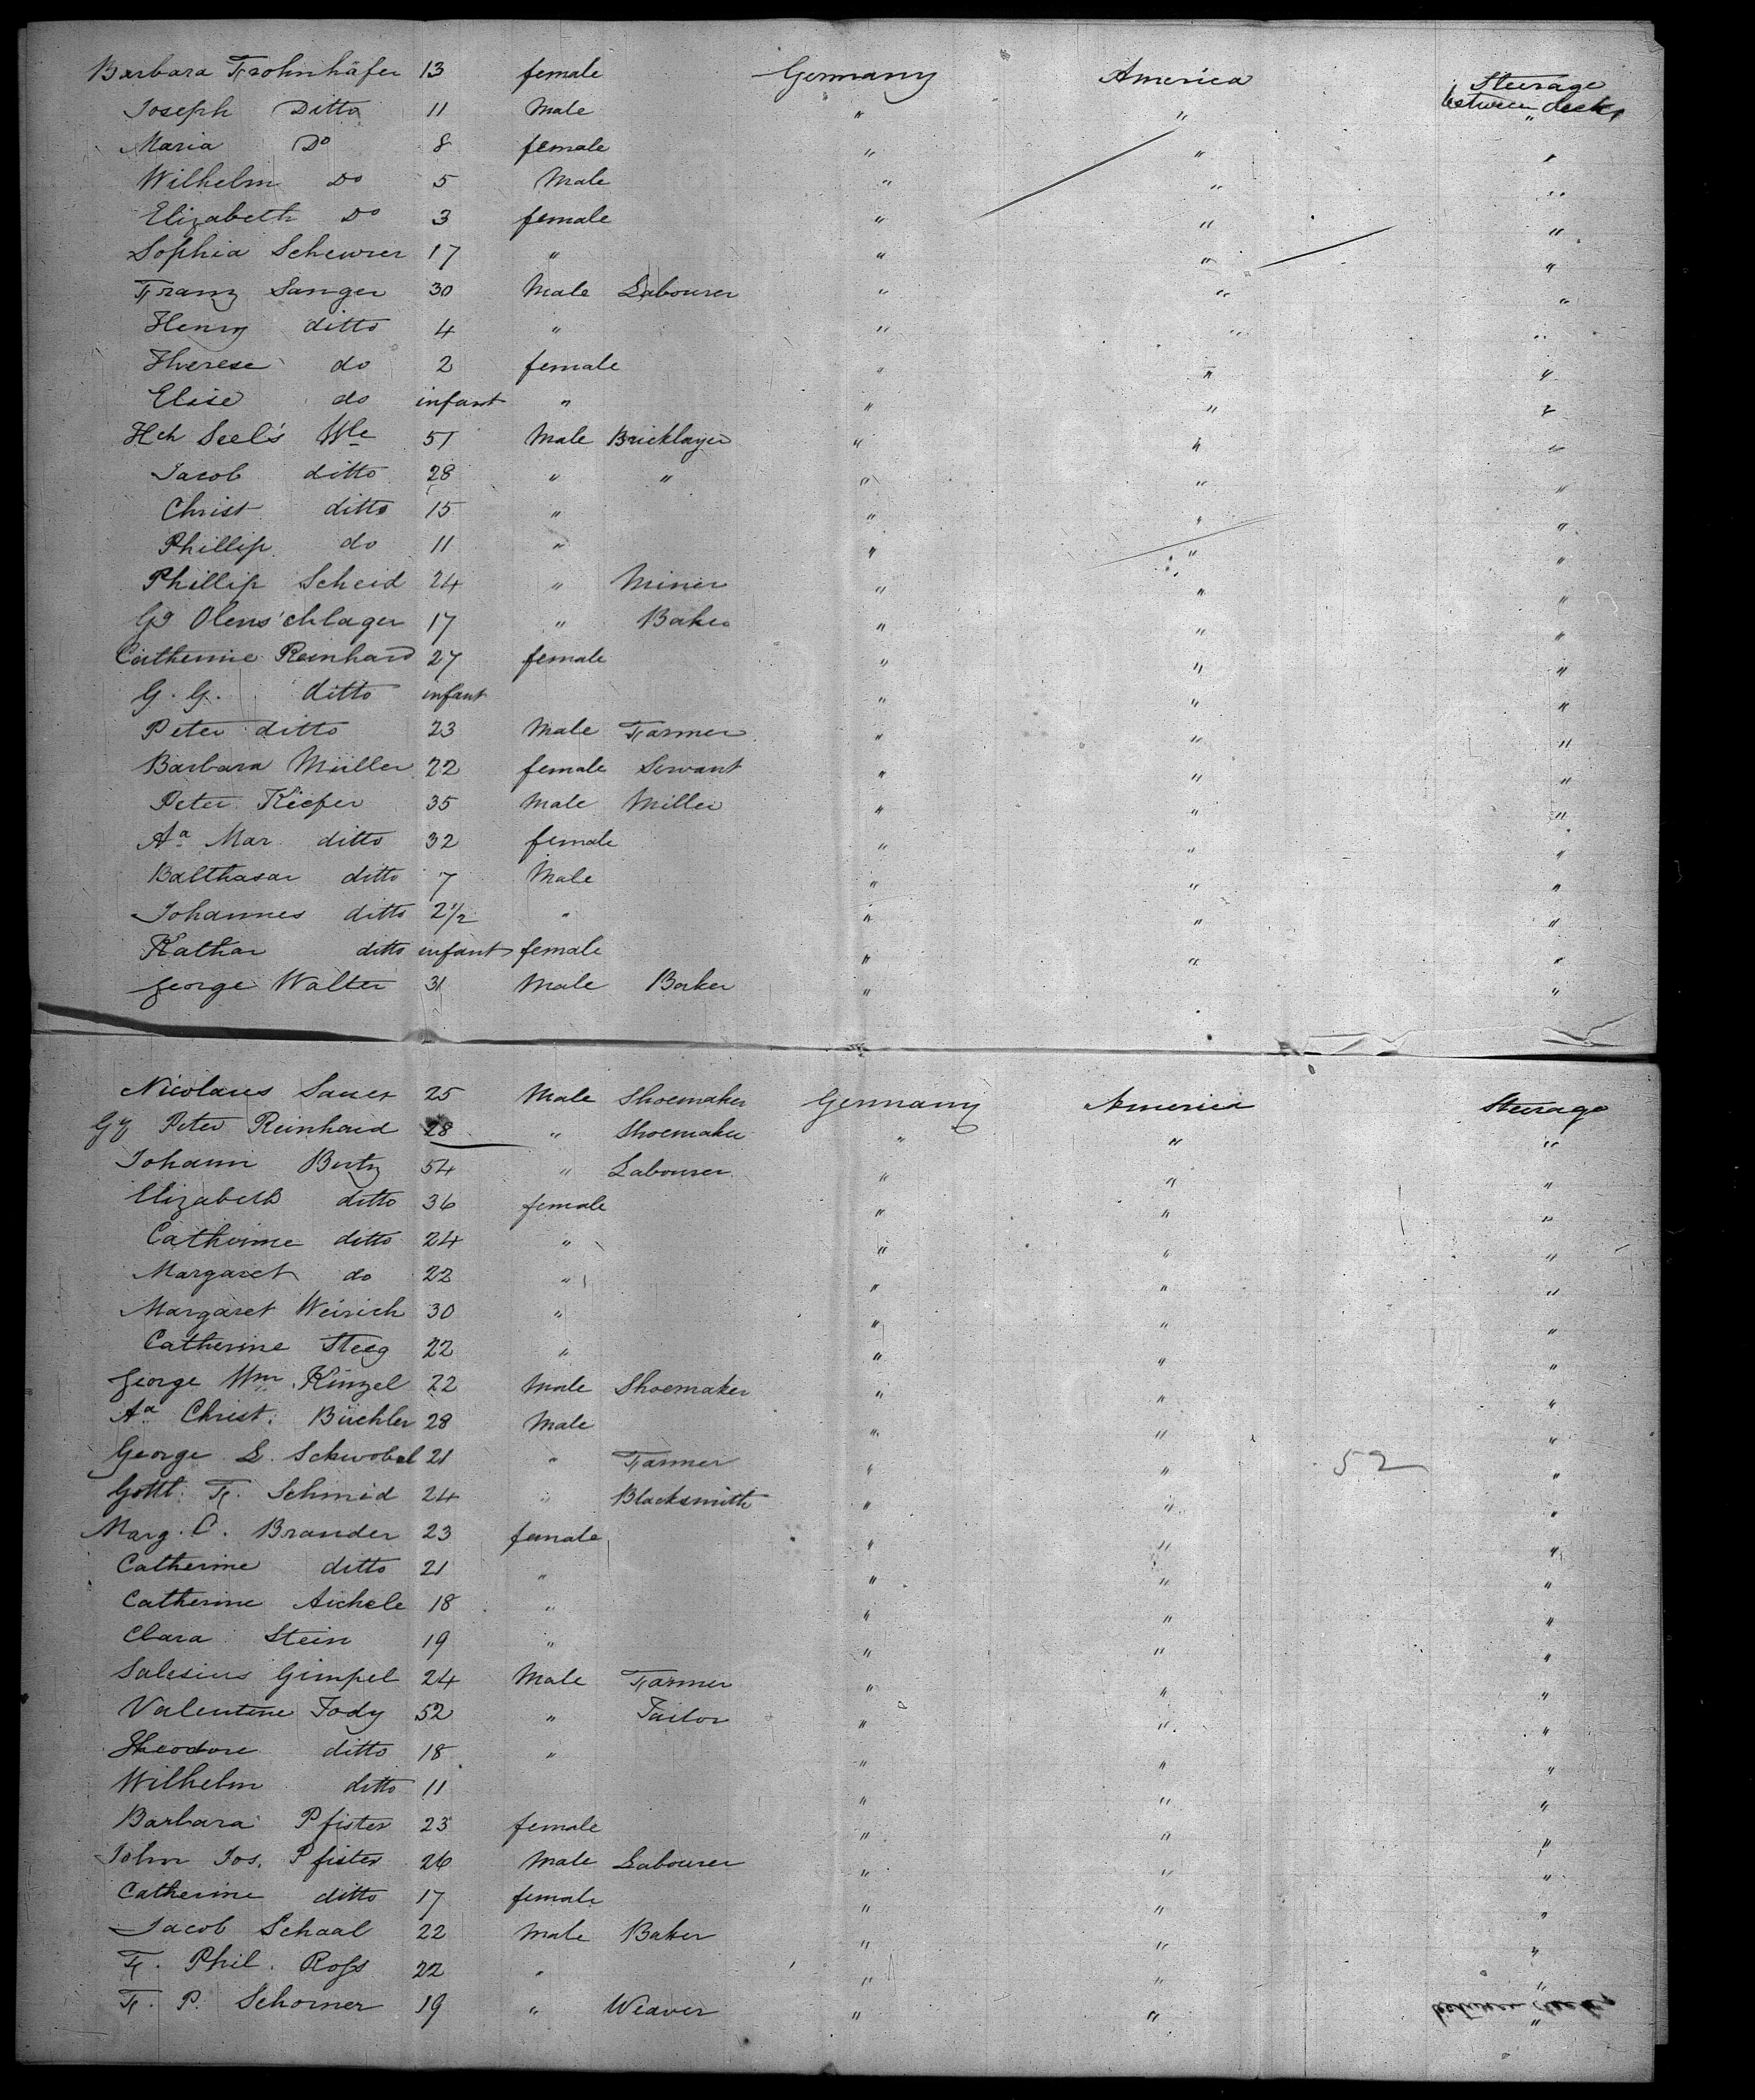 Barbara Frohnhäfer 13 female Germany America Steerage
between decks
Joseph Ditto 11 Male " " "
Maria Do 8 female " " "
Wilhelm Do 5 Male " " "
Elizabeth Do 3 female " " "
Sophia Scheurer 17 " " " "
Franz Sanger 30 Male Labourer " " "
Henry ditto 4 " " " "
Therese do 2 female " " "
Elise do infant " " " "
Hch Seel's Wle 51 Male Bricklayer " " "
Jacob ditto 28 " " " " "
Christ ditto 15 " " " "
Phillip do 11 " " " "
Phillip Scheid 24 " Miner " " "
Gg Olens'chlager 17 " Baker " " "
Catherine Reinhard 27 female " " "
G. G. ditto infant " " "
Peter ditto 23 Male Farmer " " "
Barbara Müller 22 female Servant " " "
Peter Kiefer 35 Male Miller " " "
Aa Mar ditto 32 female " " "
Balthasar ditto 7 Male " " "
Johannes ditto 2 1/2 " " " "
Kathar ditto infant female " " "
George Walter 31 Male Baker " " "
Nicolaus Sauer 25 Male Shoemaker Germany America Steerage
Gg Peter Reinhard 28 " Shoemaker " " "
Johann Butz 54 " Labourer " " "
Elizabeth ditto 36 female " " "
Catherine ditto 24 " " " "
Margaret do 22 " " " "
Margaret Weirich 30 " " " "
Catherine Steeg 22 " " " "
George Wm Kinzel 22 Male Shoemaker " " "
Aa Christ: Büchler 28 Male " " "
George L. Schwobel 21 " Farmer " " 52 "
Gottl. F. Schmid 24 " Blacksmith " " "
Marg. C. Brander 23 female " " "
Catherine ditto 21 " " " "
Catherine Aichele 18 " " " "
Clara Stein 19 " " " "
Salesius Gimpel 24 Male Farmer " " "
Valentine Jody 52 " Tailor " " "
Theodore ditto 18 " " " "
Wilhelm ditto 11 " " "
Barbara Pfister 23 female " " "
John Jos. Pfister 26 Male Labourer " " "
Catherine ditto 17 female " " "
Jacob Schaal 22 Male Baker " " "
F. Phil. Roß 22 " " " "
F. P. Schorner 19 " Weaver " " "
between decks